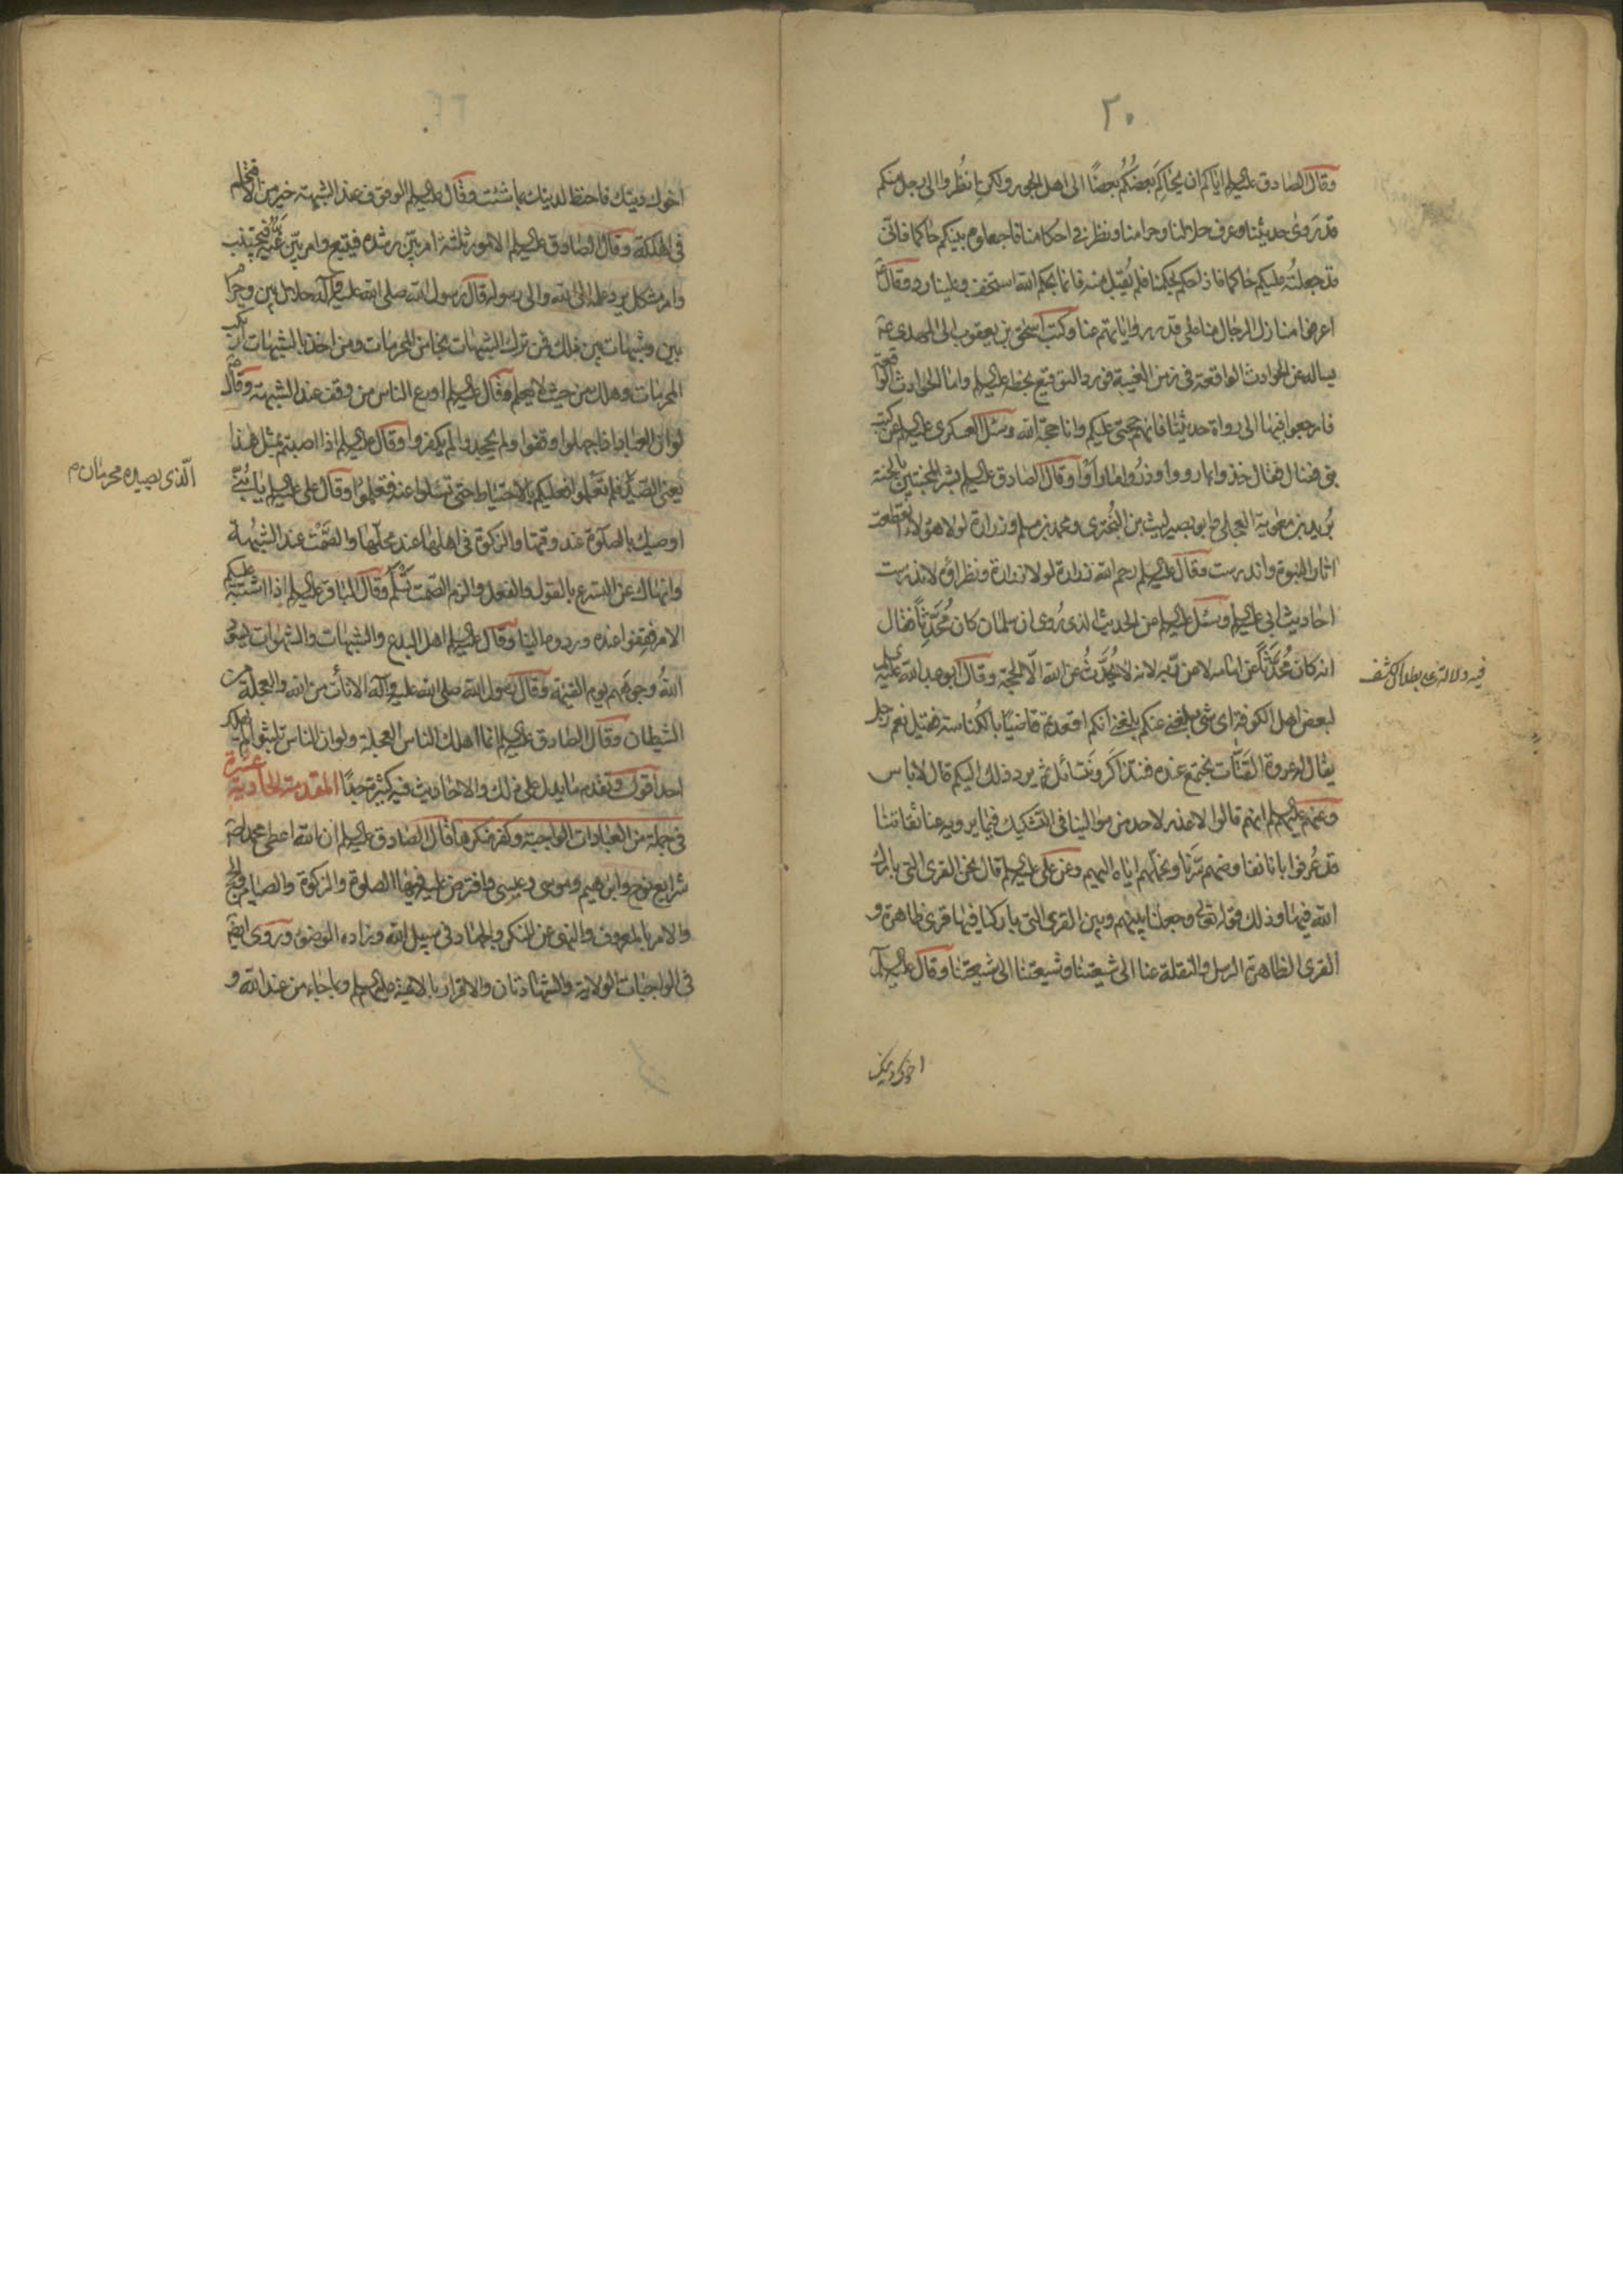 ٢٠
وقال الصادق عليه السلم اياكم ان يحاكم بعضكم بعضا الى اهل الجور ولكن انظروا الى رجل منكم
قد روى حديثنا وعرف حلالنا وحرامنا ونظر في احكامنا فاجعلوه بينكم حاكما فانى
قد جعلته عليكم حاكما فاذا حكم بحكمنا فلم يقبل منه فانما بحكم الله استخف وعلينا رد وقال ع
اعرفوا منازل الرجال منا على قدر رواياتهم عنا وكتب اسحق بن يعقوب الى المهدى ع
يساله عن الحوادث الواقعة فى زمن الغيبة فورد التوقيع بخطه عليه السلم واما الحوادث الواقعة
فارجعوا فيها الى رواة حديثنا فانهم حجتى عليكم وانا حجة الله وسئل العسكرى عليه السلم عن كتب
بنى فضال فقال خذوا بما رووا وذروا ما راوا وقال الصادق عليه السلم بشر المخبتين بالجنة
بريد بن معوية العجلى وابو بصير ليث بن البخترى ومحمد بن مسلم وزرارة لولا هؤلاء انقطعت
اثار النبوة واندرست وقال عليه السلم رحم الله زرارة لولا زرارة ونظراؤه لاندرست
احاديث ابى عليه السلم وسئل عليه السلم عن الحديث الذى روى ان سلمان كان محدثا فقال
انه كان محدثا عن امامه لا عن ربه لانه لا يحدث عن الله الا الحجة وقال ابو عبد الله عليه السلم
لبعض اهل الكوفة اى شئ بلغنى عنكم بلغنى انكم اقعدتم قاضيا بالكناسة فقيل نعم رجل
يقال له عروة القتات نجتمع عنده فنتذاكر ونتسائل ثم يرد ذلك اليكم قال لا باس
وعنهم عليهم السلم انهم قالوا لا عذر لاحد من موالينا فى التشكيك فيما يرويه عنا ثقاتنا
قد عرفوا بانا نفاوضهم سرنا ونحملهم اياه اليهم وعن على عليه السلم قال نحن القرى التى بارك
الله فيها وذلك قوله تعالى وجعلنا بينهم وبين القرى التى باركنا فيها قرى ظاهرة و
القرى الظاهرة الرسل والنقلة عنا الى شيعتنا وشيعتنا الى شيعتنا وقال عليه السلم
فيه دلالة على بطلان الكشف
اخوك دينك
اخوك دينك فاحتط لدينك بما شئت وقال عليه السلم الوقوف عند الشبهة خير من الاقتحام
فى الهلكة وقال الصادق عليه السلم الامور ثلثة امر بين رشده فيتبع وامر بين غيه فيجتنب
وامر مشكل يرد علمه الى الله والى رسوله قال رسول الله صلى الله عليه وآله حلال بين وحرام
بين وشبهات بين ذلك فمن ترك الشبهات نجا من المحرمات ومن اخذ بالشبهات ارتكب
المحرمات وهلك من حيث لا يعلم وقال عليه السلم اورع الناس من وقف عند الشبهة وقال ع
لو ان العباد اذا جهلوا وقفوا ولم يجحدوا لم يكفروا وقال عليه السلم اذا اصبتم بمثل هذا
يعنى الصيد فلم تعلموا فعليكم بالاحتياط حتى تسئلوا عنه فتعلموا وقال على عليه السلم يا بنى
اوصيك بالصلوة عند وقتها والزكوة فى اهلها عند محلها والصمت عند الشبهة
وانهاك عن التسرع بالقول والفعل والزم الصمت تسلم وقال الباقر عليه السلم اذا اشتبه عليكم
الامر فقفوا عنده وردوه الينا وقال عليه السلم اهل البدع والشبهات والشهوات يسود
الله وجوههم يوم القيمة وقال رسول الله صلى الله عليه وآله الاناة من الله والعجلة من
الشيطان وقال الصادق عليه السلم انما اهلك الناس العجلة ولو ان الناس تثبتوا لم يهلك
احد اقول وتقدم ما يدل على ذلك والاحاديث فيه كثيرة جدا المقدمة الحادية عشرة
فى جملة من العبادات الواجبة وكفر منكرها قال الصادق عليه السلم ان الله اعطى محمدا ص
شرايع نوح وابرهيم وموسى وعيسى وافترض عليه فيها الصلوة والزكوة والصيام والحج
والامر بالمعروف والنهى عن المنكر والجهاد فى سبيل الله وزاده الوضوء وروى ايضا
فى الواجبات الولاية والشهادتان والاقرار بالائمة عليهم السلم وبما جاء من عند الله و
الذى يصيده محرمان م